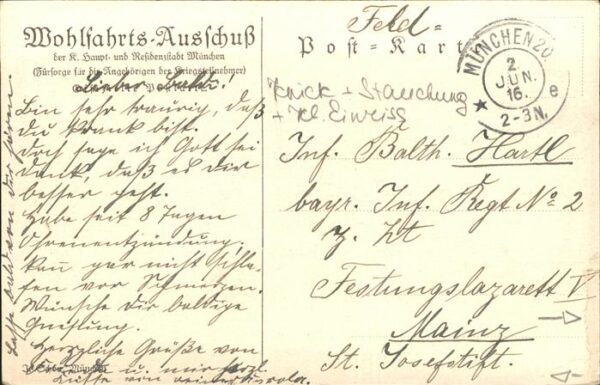 Wohlfahrts-Ausschuß
der K. Haupt- und Residenzstadt München
(Fürsorge für die Angehörigen der Kriegsteilnehmer)
Lieber Balds.
Bin sehr traurig, daß
du krank bist.
doch sage ich Gott sei
dank, daß es dir
besser geht.
Habe seit 8 Tagen
Ohrenentzündung,
kan gar nicht schla-
fen vor Schmerzen.
Wünsche dir baldige
Herzliche Grüße von
u. mir
Küsse von deiner
München
Lasse bald von dir hören.
Feld-
Post-Karte
MÜNCHEN 20.
2.
JUN.
16.
e
2-3N.
Knick + Stauchung
+ kl. Einriss
Inf. Balth. Hartl
bayr. Inf. Regt No 2
z. Zt
Festungslazarett V
Mainz
St. Josefstift.